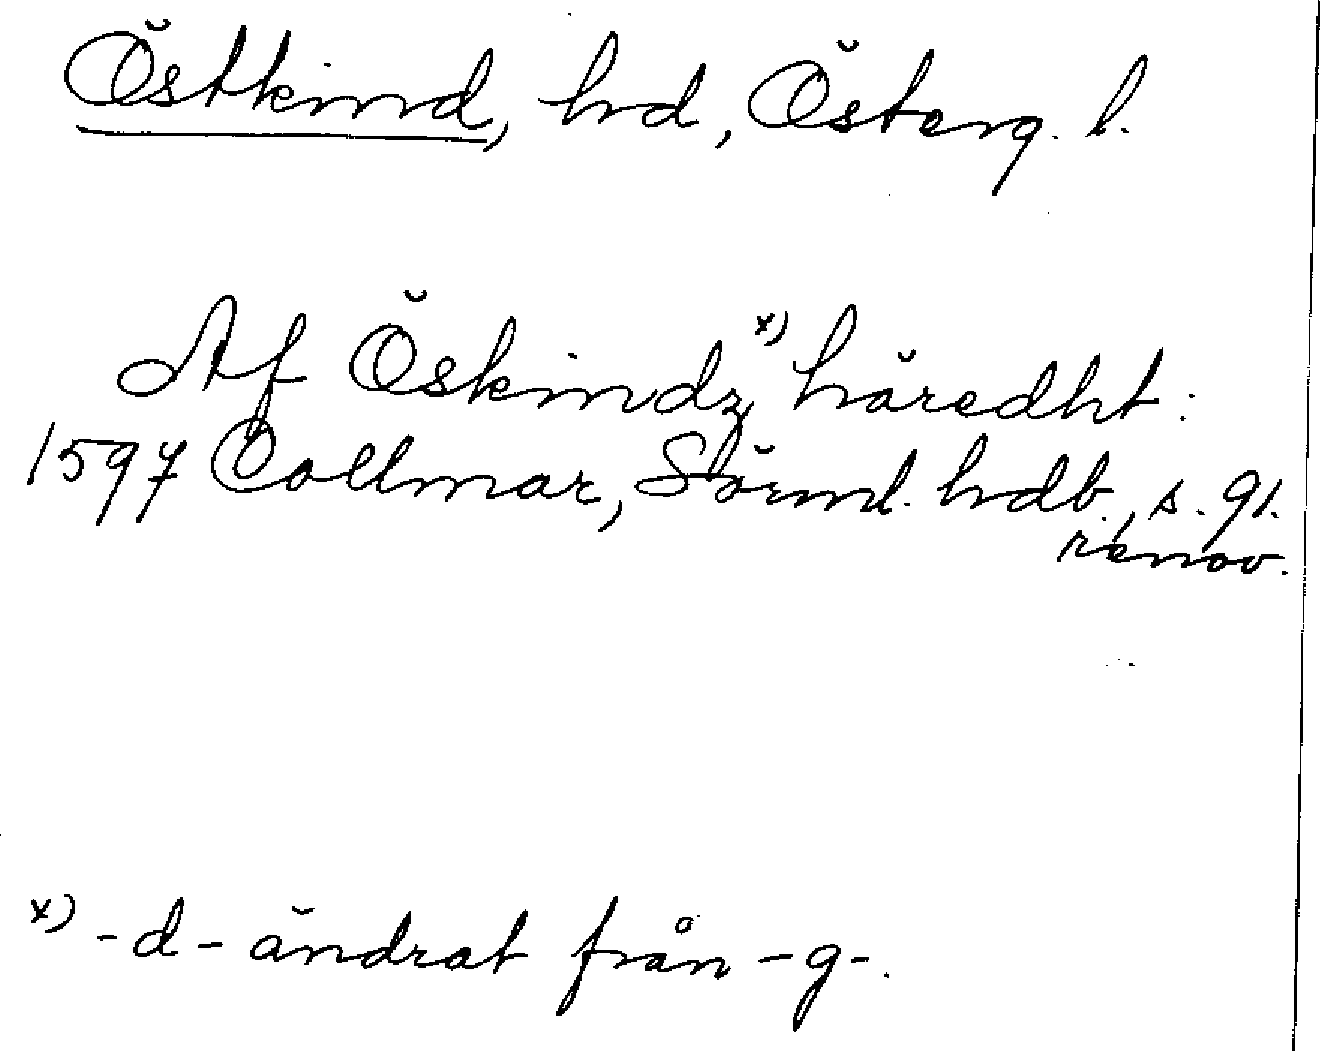 Östkind, hd, Österg. l.
Af Öskindz x) häredht:
1597 Collmar, Sörml. hdb., s. 91.
renov.
x) -d- ändrat från -g-.